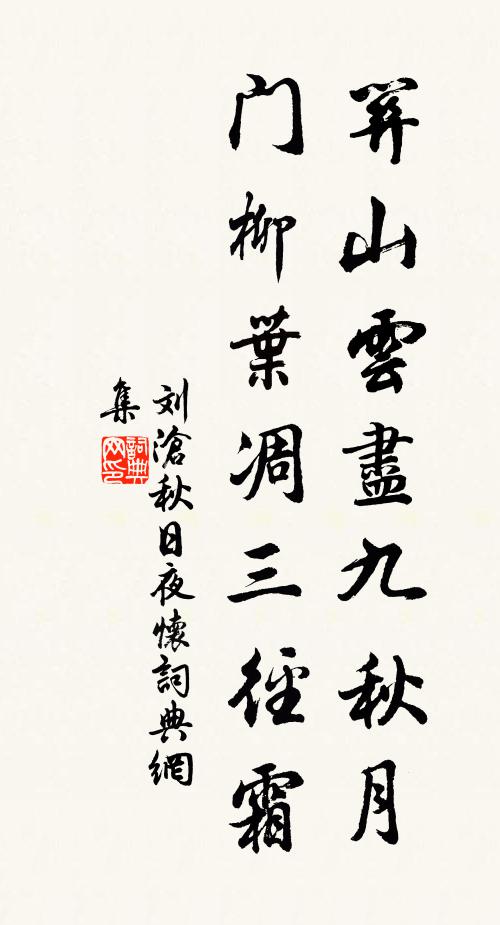 關山雲盡九秋月
門柳葉凋三徑霜
刘滄秋日夜懷詞典網
集
詞典
网印